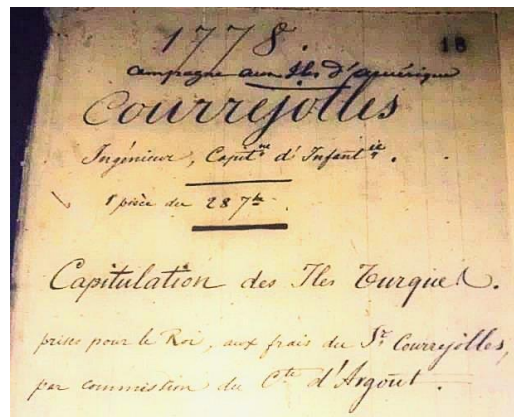 1778.
18
campagne aux Iles d'amérique
Courrejolles
Ingénieur, Capit.ne d'Infant.ie.
1 pièce du 28 7bre
Capitulation des Iles Turques.
prises pour le Roi, aux frais du Sr. Courrejolles,
par commission du Cte d'Argout.